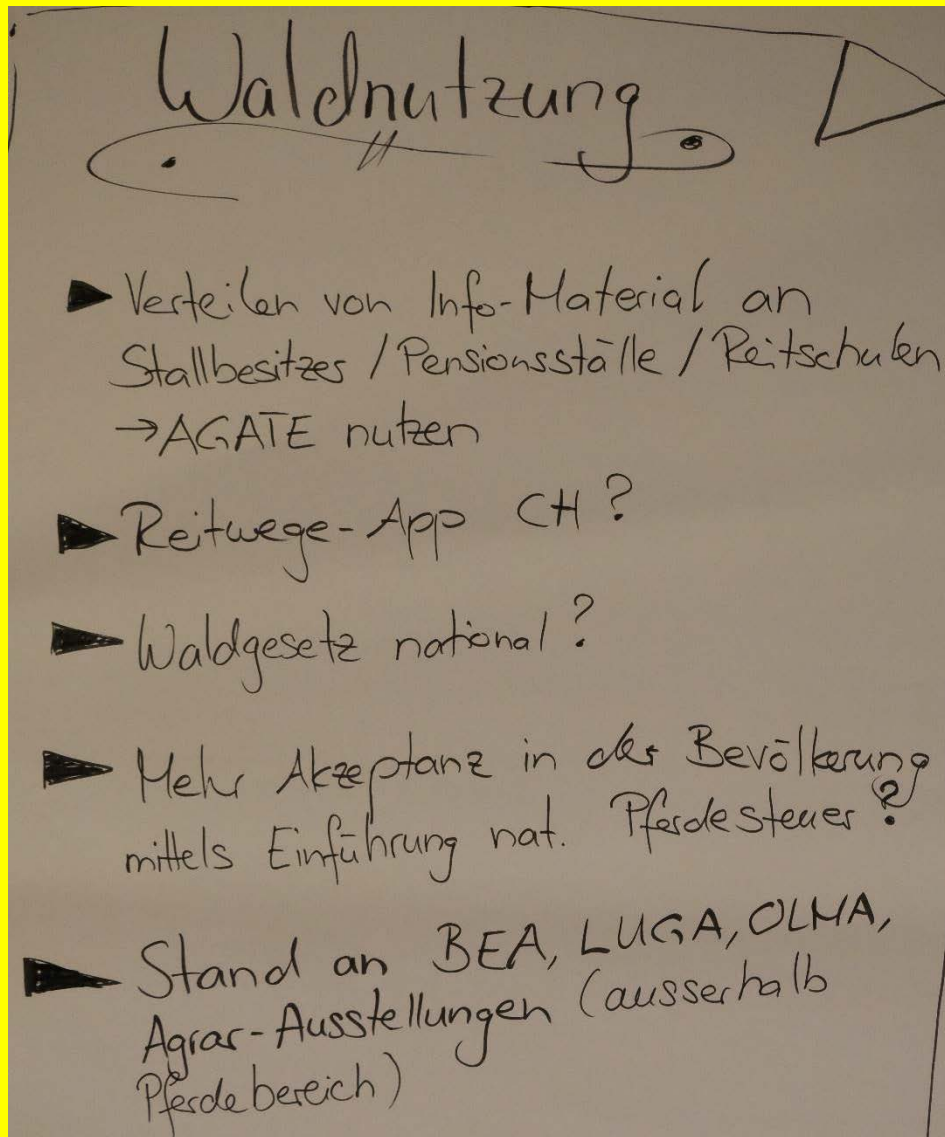 Waldnutzung
► Verteilen von Info-Material an
Stallbesitzer / Pensionsställe / Reitschulen
→ AGATE nutzen
► Reitwege-App CH?
► Waldgesetz national?
► Mehr Akzeptanz in der Bevölkerung
mittels Einführung nat. Pferdesteuer?
► Stand an BEA, LUGA, OLMA,
Agrar-Ausstellungen (ausserhalb
Pferdebereich)